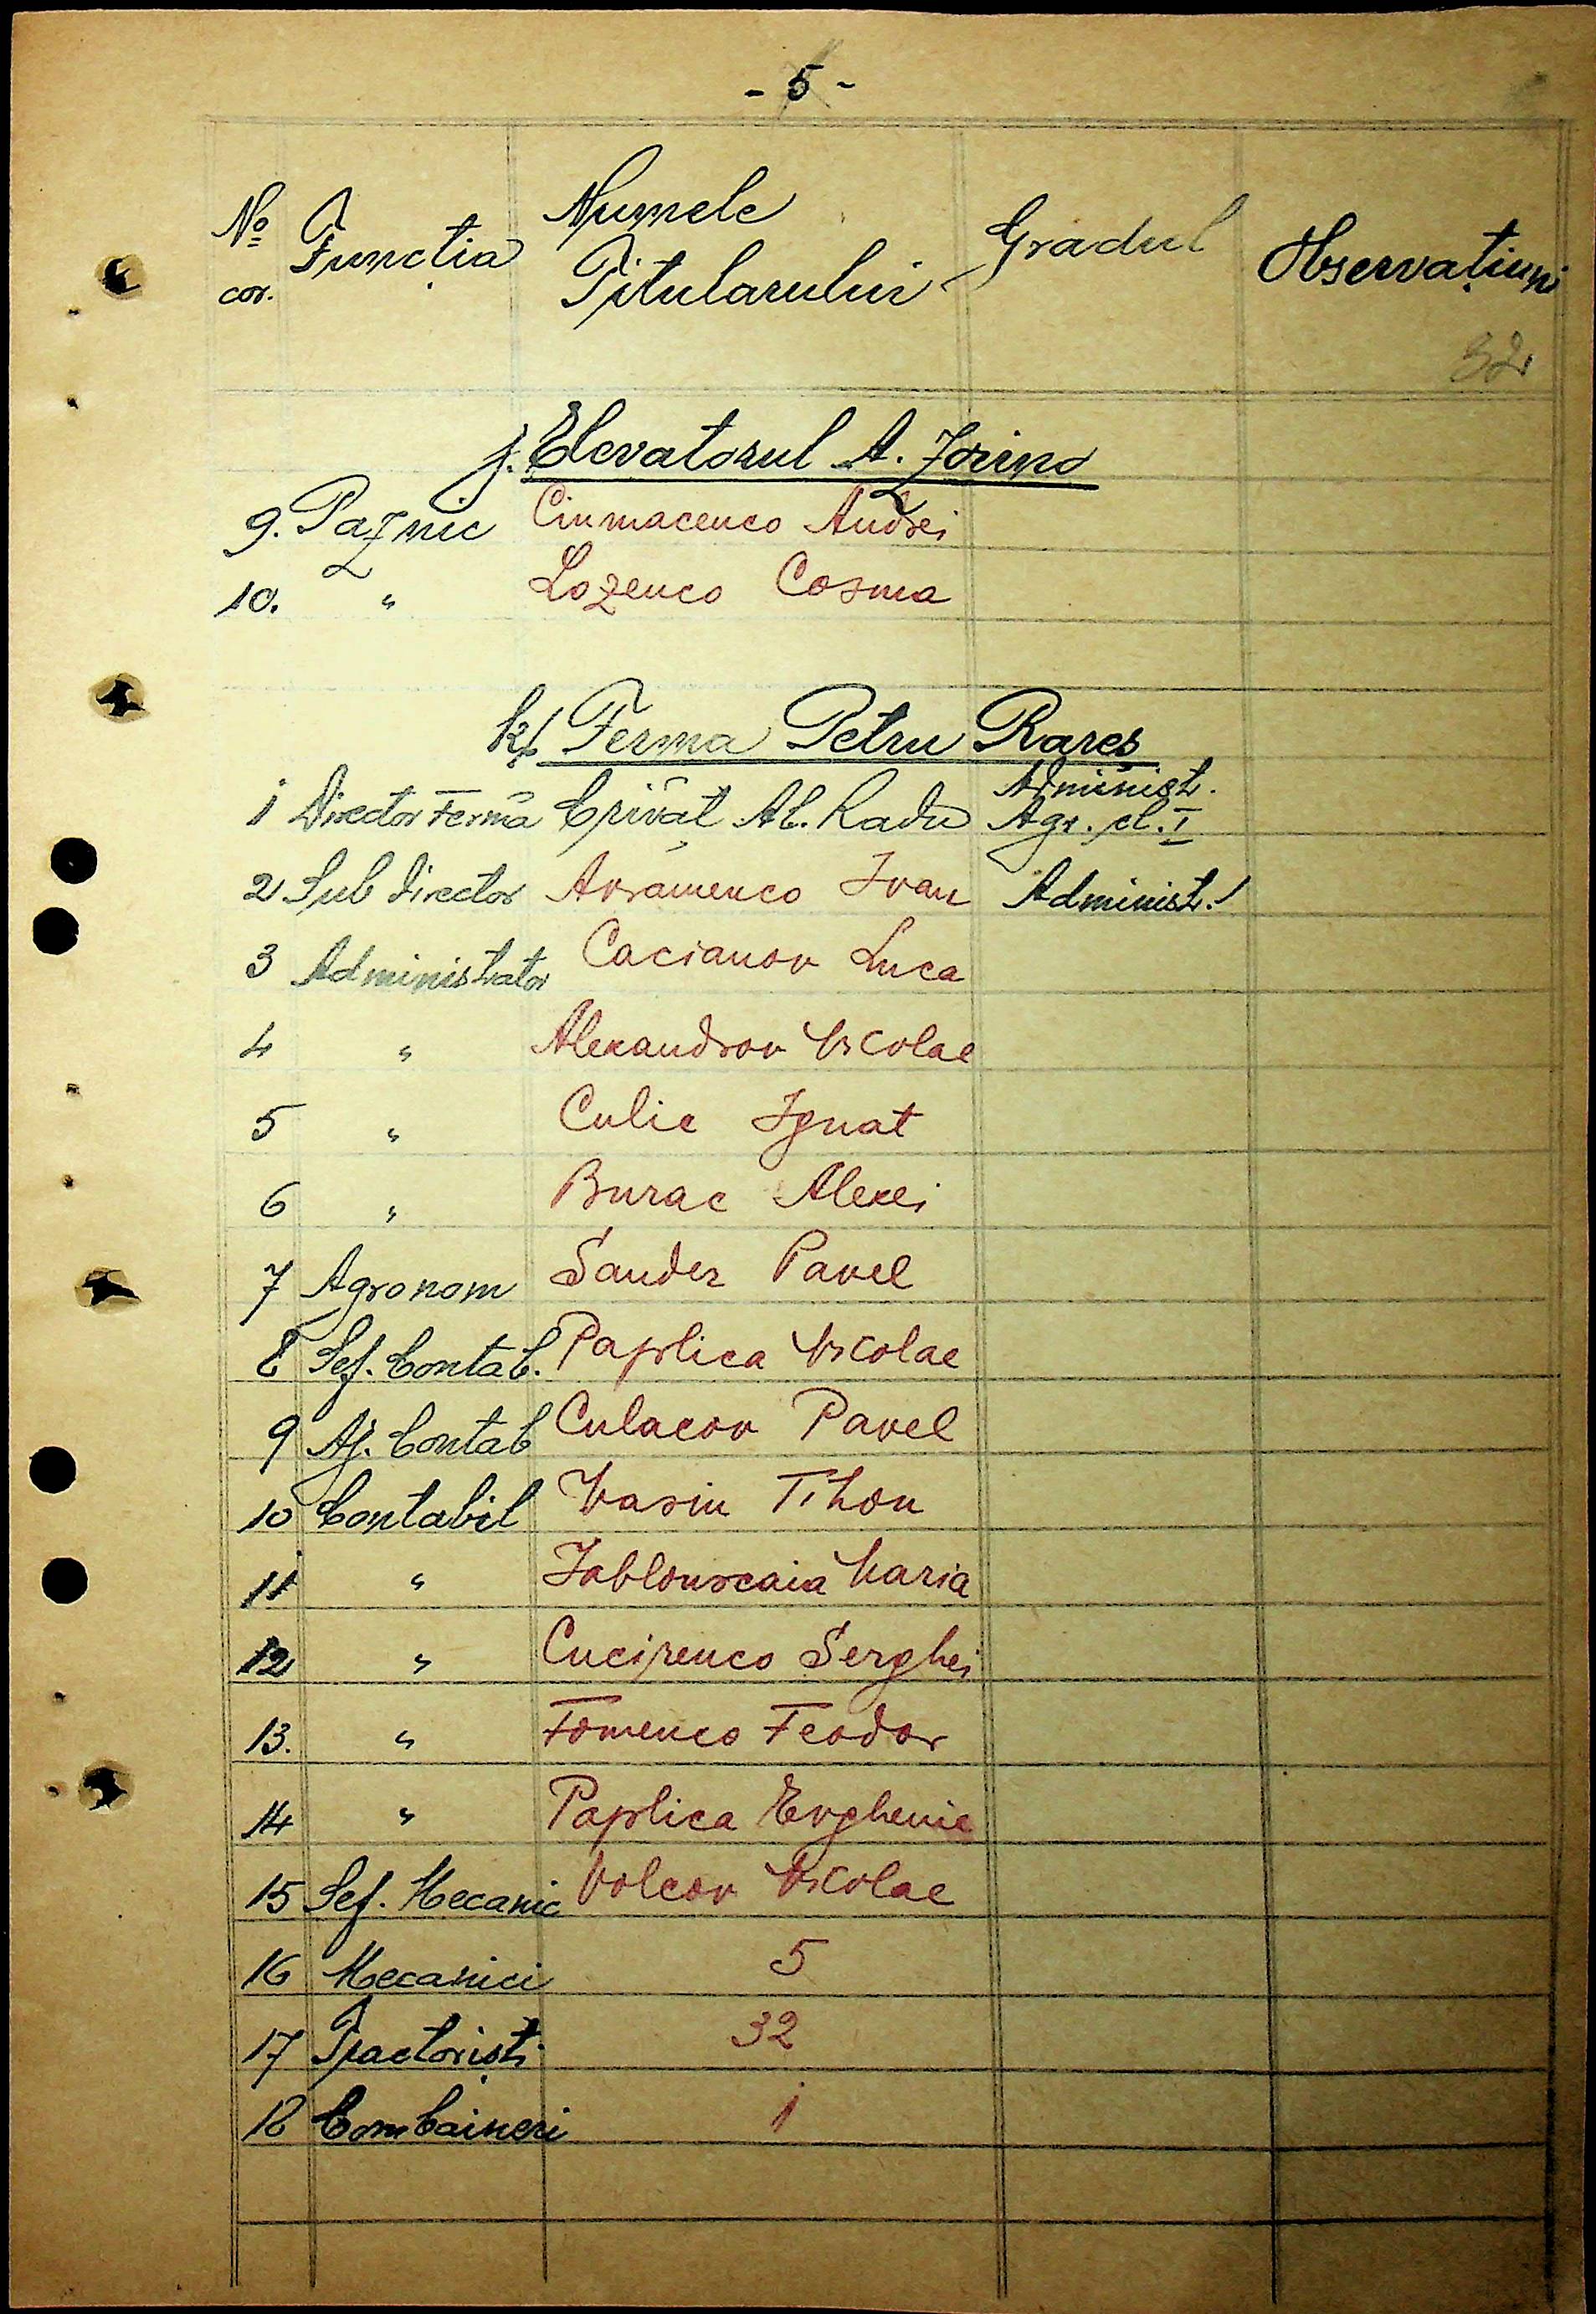 - 5 -
No Functia Numele Gradul Observațiuni
cor. Titularului
32
j. Elevatorul A. Zorino
9. Paznic Ciumacenco Andrei
10. " Lozenco Cosma
k/ Ferma Petru Rareș
Administ.
1 Director Fermă Crivăț Al. Radu Agr. cl. I
2 Sub director Avramenco Ivan Administ.
3 Administrator Cacianov Luca
4 " Alexandrov Nicolae
5 " Culic Ignat
6 " Burac Alexei
7 Agronom Sander Pavel
8 Șef. Contab. Paplica Nicolae
9 Aj. Contab Culacov Pavel
10 Contabil Vasin Tihon
11 " Iablonscaia Maria
12 " Cucirenco Serghei
13. " Fomenco Feodor
14 " Paplica Evghenie
15 Șef. Mecanic Volcov Nicolae
16 Mecanici 5
17 Tractoriști 32
18 Combaineri 1